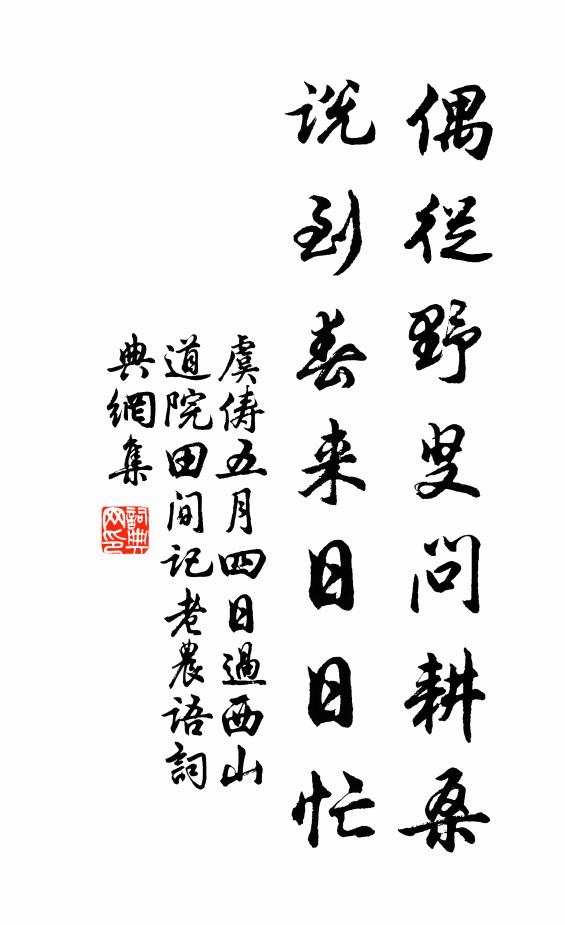 偶從野叟問耕桑
説到春来日日忙
虞儔五月四日過西山
道院田间記老農語詞
典網集
詞典网印